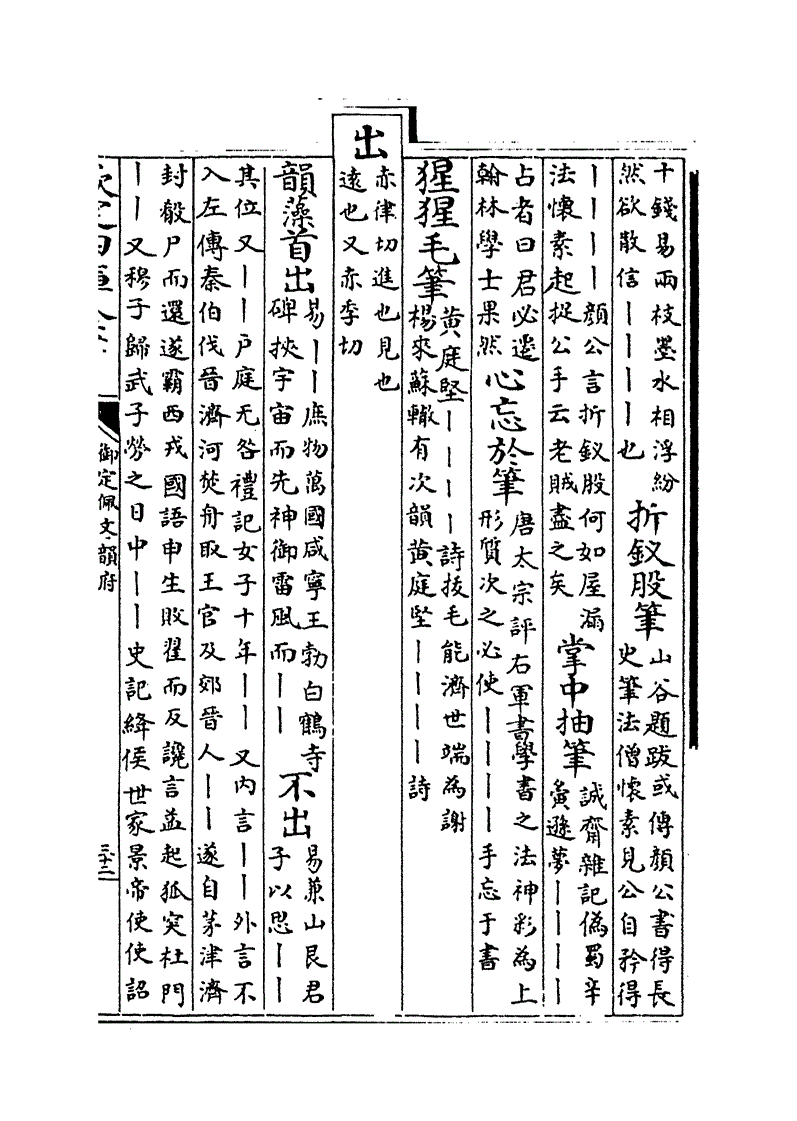 十錢易兩枝墨水相浮紛
然欲散信丨丨丨丨也
折釵股筆
山谷題跋或傳顔公書得長
史筆法僧懷素見公自矜得
丨丨丨丨顔公言折釵股何如屋漏
法懷素起捉公手云老賊盡之矣
掌中抽筆
誠齋雜記偽蜀辛
夤遜夢丨丨丨丨
占者曰君必遷
翰林學士果然
心忘於筆
唐太宗評右軍書學書之法神彩為上
形質次之必使丨丨丨丨手忘于書
猩猩毛筆
黄庭堅丨丨丨丨詩抜毛能濟世端為謝
楊來蘇轍有次韻黄庭堅丨丨丨丨詩
出
赤律切進也見也
遠也又赤季切
韻藻首出
易丨丨庶物萬國咸寧王勃白鶴寺
碑挾宇宙而先神御雷風而丨丨
不出
易兼山艮君
子以思丨丨
其位又丨丨户庭无咎禮記女子十年丨丨又内言丨丨外言不
入左傳秦伯伐晉濟河焚舟取王官及郊晉人丨丨遂自茅津濟
封殽尸而還遂霸西戎國語申生敗翟而反讒言益起狐突杜門
丨丨又穆子歸武子勞之日中丨丨史記絳侯世家景帝使使詔
御定佩文韻府
三十二